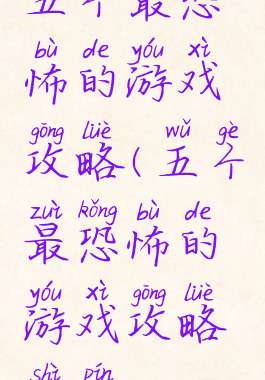 五个最恐
bù de yóu xì
怖的游戏
gōng lüè wǔ gè
攻略(五个
zuì kǒng bù de
最恐怖的
yóu xì gōng lüè
游戏攻略
shì pín